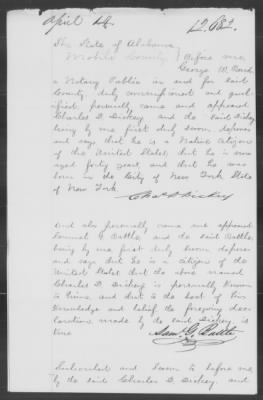 April 14. 12.682.
The State of Alabama
Mobile County Before me
George W. Bond
a Notary Public in and for said
County duly commissioned and qual-
ified, personally came and appeared
Charles D. Dickey and the said Dickey
being by me first duly sworn deposes
and says that he is a Native Citizen
of the United States that he is now
aged forty years and that he was
born in the City of New York State
of New York.
Chas D Dickey
And also personally came and appeared
Samuel G. Battle and the said Battle
being by me first duly sworn deposes
and says that he is a citizen of the
United States that the above named
Charles D. Dickey is personally known
to him and that to the best of his
Knowledge and belief the foregoing dec-
laration made by the said Dickey is
true
Sam. G. Battle
Subscribed and Sworn to before me
by the said Charles D. Dickey and